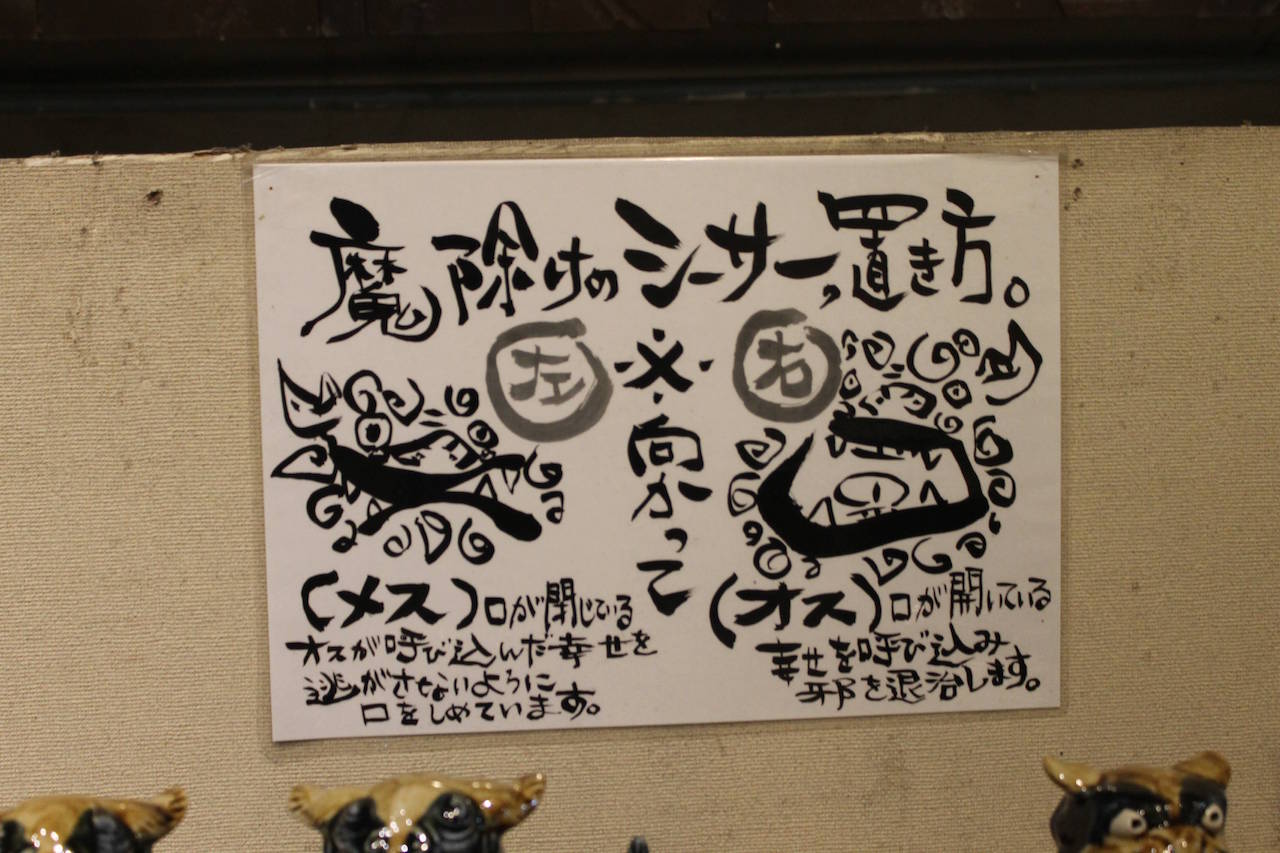 魔除けのシーサー、置き方。
左
※向かって
右
(メス)口が閉じている
オスが呼び込んだ幸せを
逃がさないように
口をしめています。
(オス)口が開いている
幸せを呼び込み
邪を退治します。